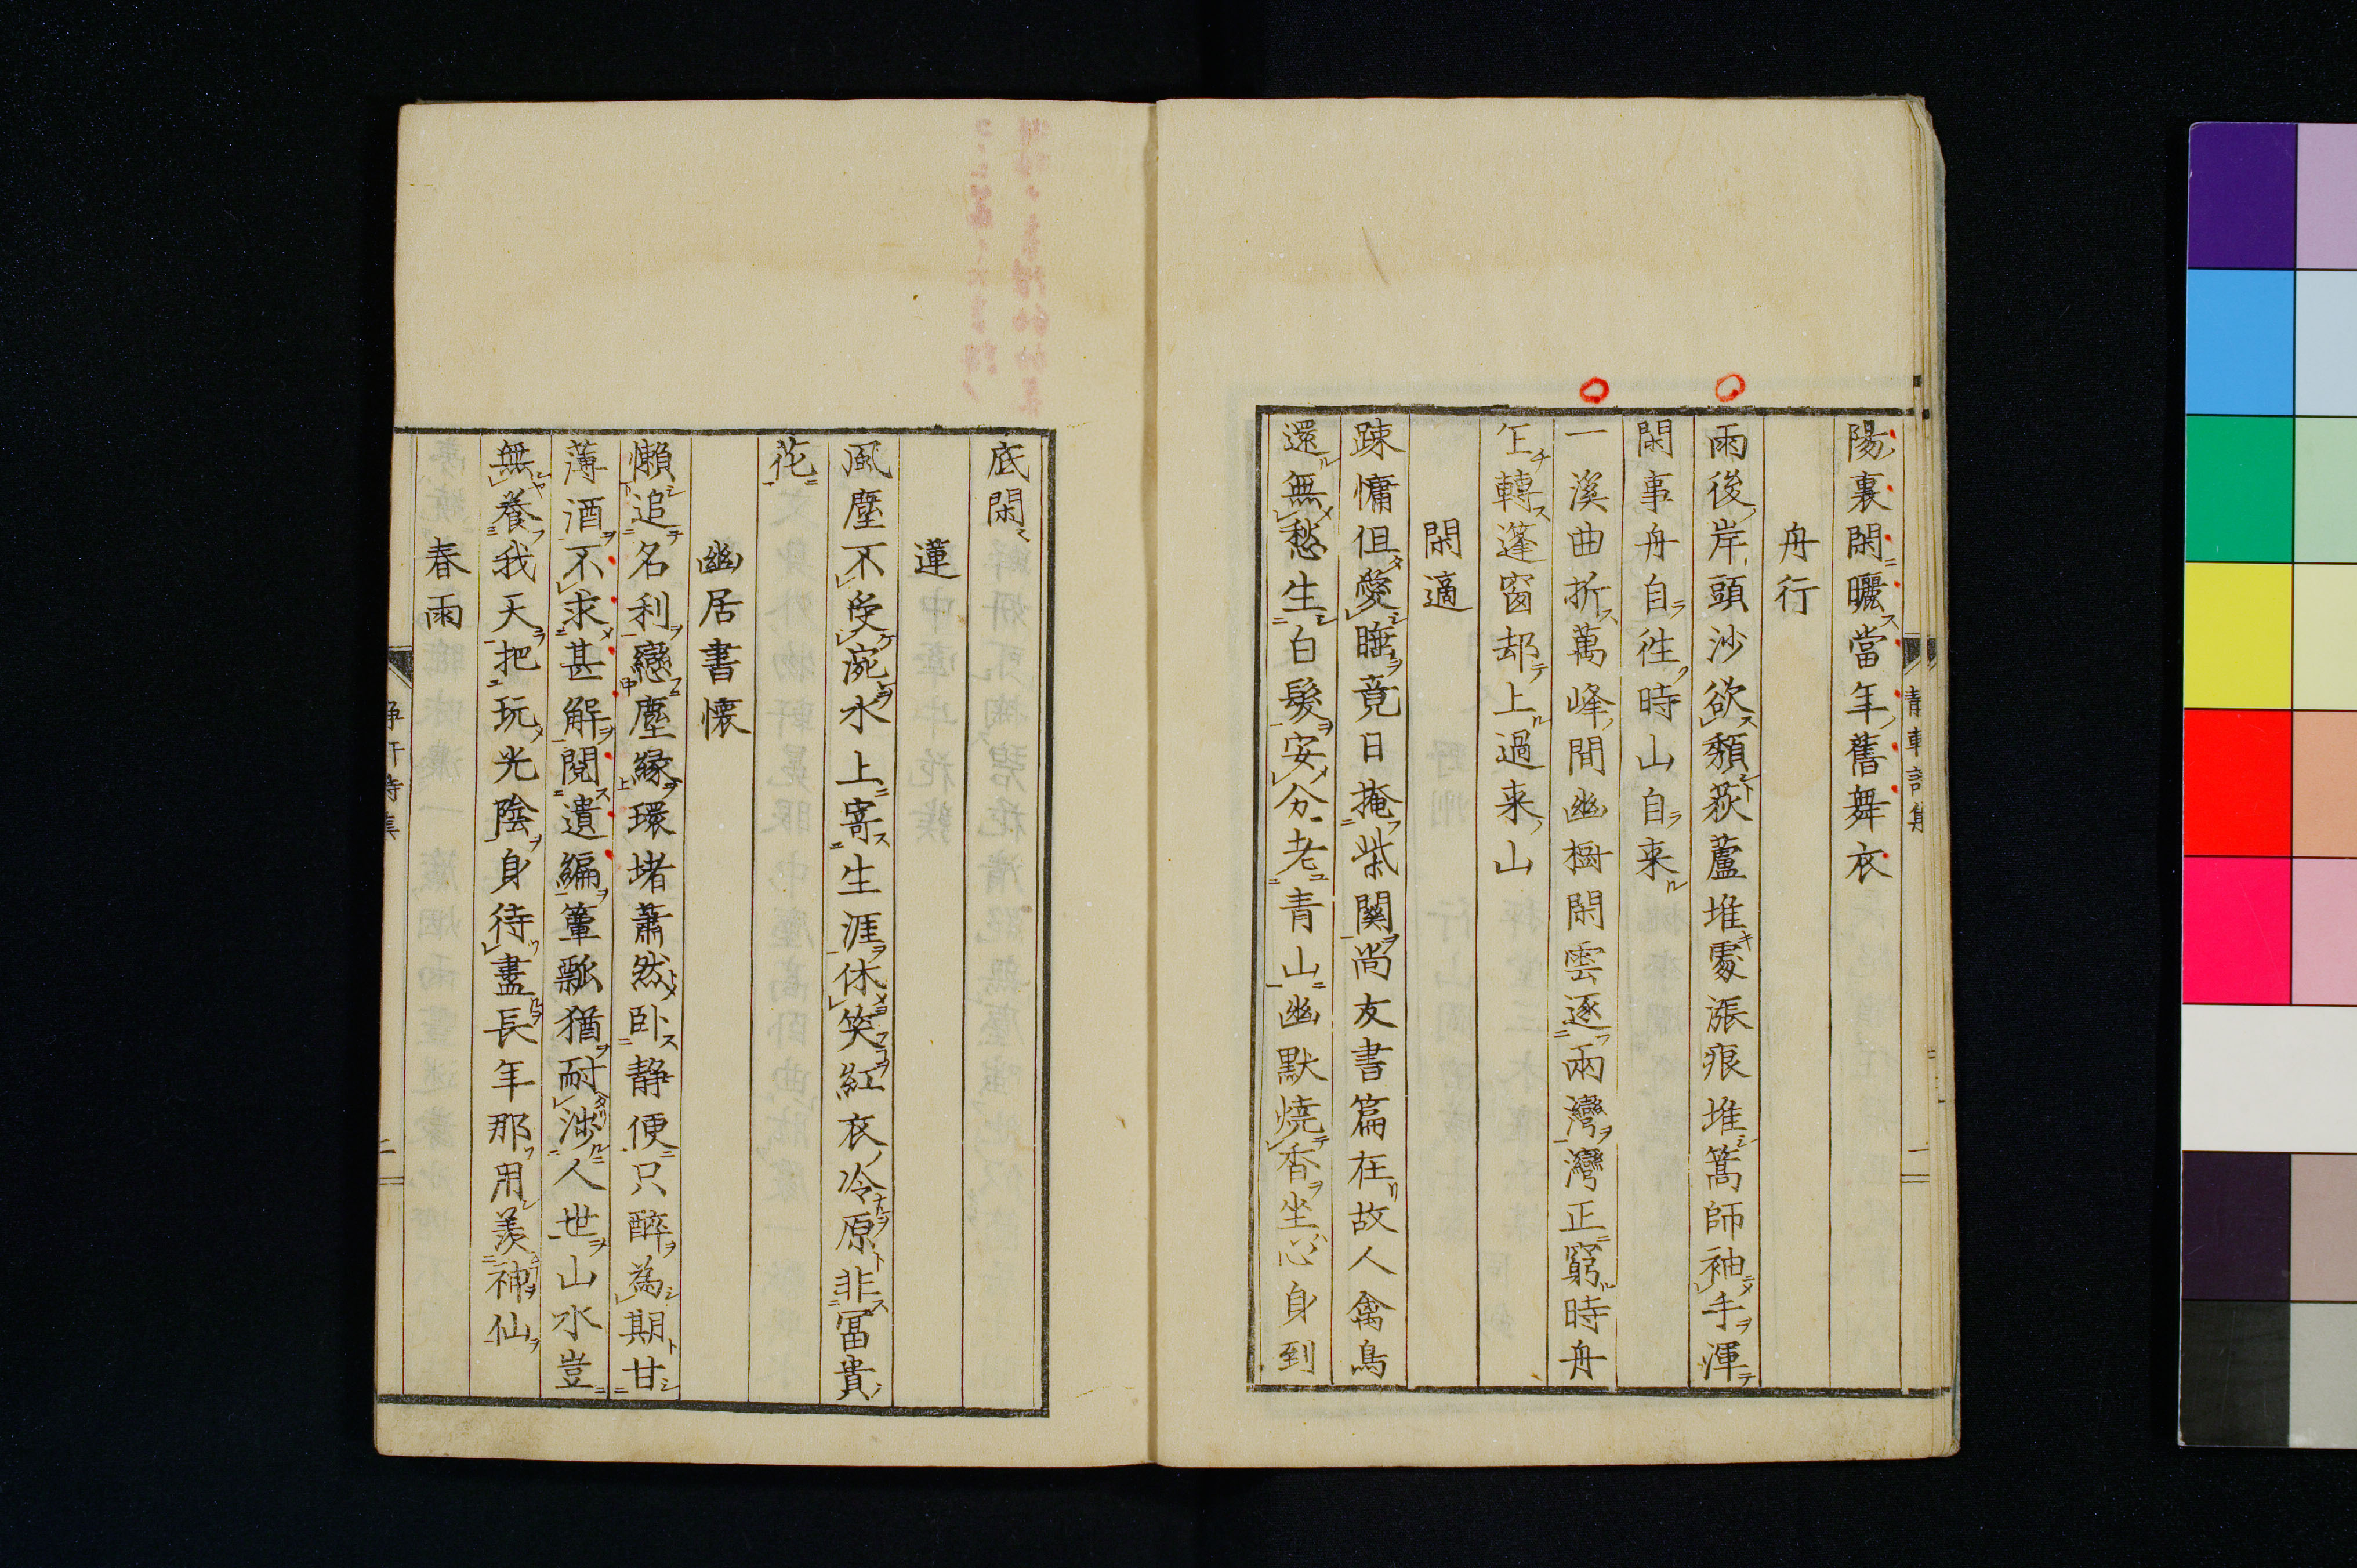 陽裏閑曬當年舊舞衣
舟行
雨後岸頭沙欲頽荻蘆堆處漲痕堆篙師袖手渾
閑事舟自往時山自来
一溪曲折萬峰間幽樹閑雲逐兩灣灣正窮時舟
乍轉蓬窗却上過来山
閑適
踈慵但愛睡竟日掩柴関尚友書篇在故人禽鳥
還無愁生白髮安分老青山幽默焼香坐心身到
底閑
蓮
風塵不受宛水上寄生涯休笑紅衣冷原非冨貴
花
幽居書懐
懶追名利戀塵縁環堵蕭然卧静便只醉為期甘
薄酒不求甚解閲遺編簞瓢猶耐渉人世山水豈
無養我天把玩光陰身待盡長年那用羨神仙
春雨